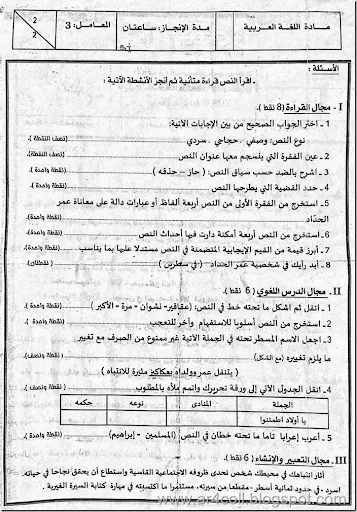 مادة اللغة العربية
مدة الإنجاز: ساعتان
المعامل: 3
2
2
الأسئلة :
ـ اقرأ النص قراءة متأنية ثم أنجز الأنشطة الآتية :
I - مجال القراءة (8 نقط).
1 - اختر الجواب الصحيح من بين الإجابات الآتية:
نوع النص: وصفي . حجاجي . سردي (نصف النقطة).
2 - عين الفقرة التي ينسجم معها عنوان النص (نصف النقطة).
3 - اشرح بالضد حسب سياق النص: ( حاز – حذقه ) (نقطة واحدة ).
4 - حدد القضية التي يطرحها النص (نقطة واحدة ).
5 - استخرج من الفقرة الأولى من النص أربعة ألفاظ أو عبارات دالة على معاناة عمر
الحداد (نقطة واحدة ).
6 - استخرج من النص أربعة أمكنة دارت فيها أحداث النص (نقطة واحدة ).
7 - أبرز قيمة من القيم الإيجابية المتضمنة في النص مستدلا عليها بما يناسب (نقطة واحدة ).
8 - أبد رأيك في شخصية عمر الحداد ( في سطرين ) ( نقطتان).
II - مجال الدرس اللغوي ( 6 نقط ).
1 - انقل ثم اشكل ما تحته خط في النص: (عقاقير- نشوان - مرة - الأكبر ) (نقطة واحدة ).
2 - استخرج من النص أسلوبا للاستفهام وآخر للتعجب (نقطة واحدة ).
3 - اجعل الاسم المسطر تحته في الجملة الآتية غير ممنوع من الصرف مع تغيير
ما يلزم تغييره (مع الشكل) (نقطة ونصف ).
( يتنقل عمر وولداه بعكاكيز مثيرة للانتباه )
4 - انقل الجدول الآتي إلى ورقة تحريرك واتمم ملأه بالمطلوب (نقطة واحدة ).
الجملة المنادى نوعه حكمه
يا أولاد اطمئنوا
5 - أعرب إعرابا تاما ما تحته خطان في النص (المسلمين - إبراهيم) (نقطة ونصف ).
III - مجال التعبير والإنشاء: ( 6 نقط ).
أثار انتباهك في محيطك شخص تحدى ظروفه الاجتماعية القاسية واستطاع أن يحقق نجاحا في حياته.
اسرد ، في حدود ثمانية أسطر ، مقطعا من سيرته، مستثمرا ما اكتسبته في مهارة كتابة السيرة الغيرية .